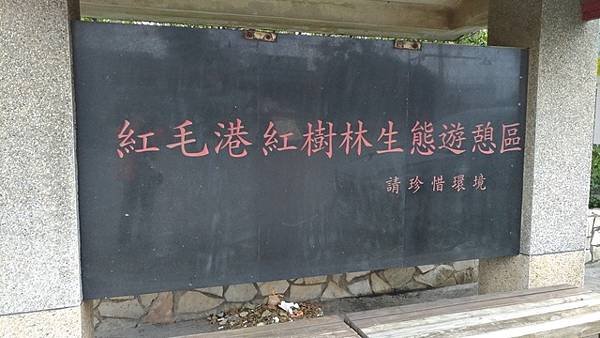 紅毛港紅樹林生態遊憩區
請珍惜環境